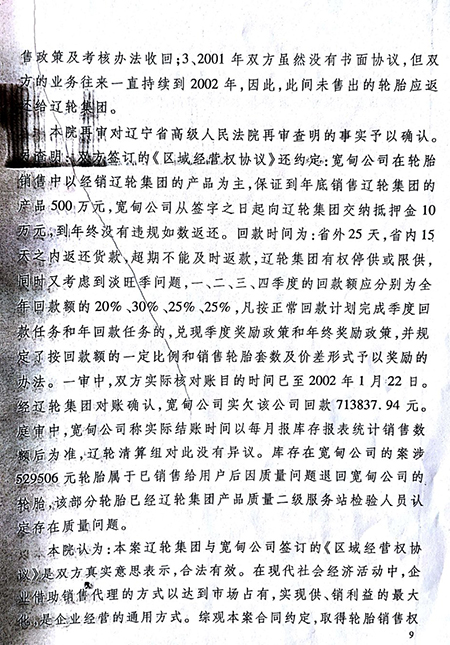 售政策及考核办法收回;3、2001 年双方虽然没有书面协议,但双
方的业务往来一直持续到 2002 年,因此,此间未售出的轮胎应返
还给辽轮集团。
本院再审对辽宁省高级人民法院再审查明的事实予以确认。
又查明:双方签订的《区域经营权协议》还约定:宽甸公司在轮胎
销售中以经销辽轮集团的产品为主,保证到年底销售辽轮集团的
产品 500 万元,宽甸公司从签字之日起向辽轮集团交纳抵押金 10
万元,到年终没有违规如数返还。回款时间为:省外 25 天,省内 15
天之内返还货款,超期不能及时返款,辽轮集团有权停供或限供,
同时又考虑到淡旺季问题,一、二、三、四季度的回款额应分别为全
年回款额的 20%、30%、25%、25%,凡按正常回款计划完成季度回
款任务和年回款任务的,兑现季度奖励政策和年终奖励政策,并规
定了按回款额的一定比例和销售轮胎套数及价差形式予以奖励的
办法。一审中,双方实际核对账目的时间已至 2002 年 1 月 22 日。
经辽轮集团对账确认,宽甸公司实欠该公司回款 713837.94 元。
庭审中,宽甸公司称实际结账时间以每月报库存报表统计销售数
额后为准,辽轮清算组对此没有异议。库存在宽甸公司的案涉
529506 元轮胎属于已销售给用户后因质量问题退回宽甸公司的
轮胎,该部分轮胎已经辽轮集团产品质量二级服务站检验人员认
定存在质量问题。
本院认为:本案辽轮集团与宽甸公司签订的《区域经营权协
议》是双方真实意思表示,合法有效。在现代社会经济活动中,企
业借助销售代理的方式以达到市场占有,实现供、销利益的最大
化,是企业经营的通用方式。综观本案合同约定,取得轮胎销售权
9